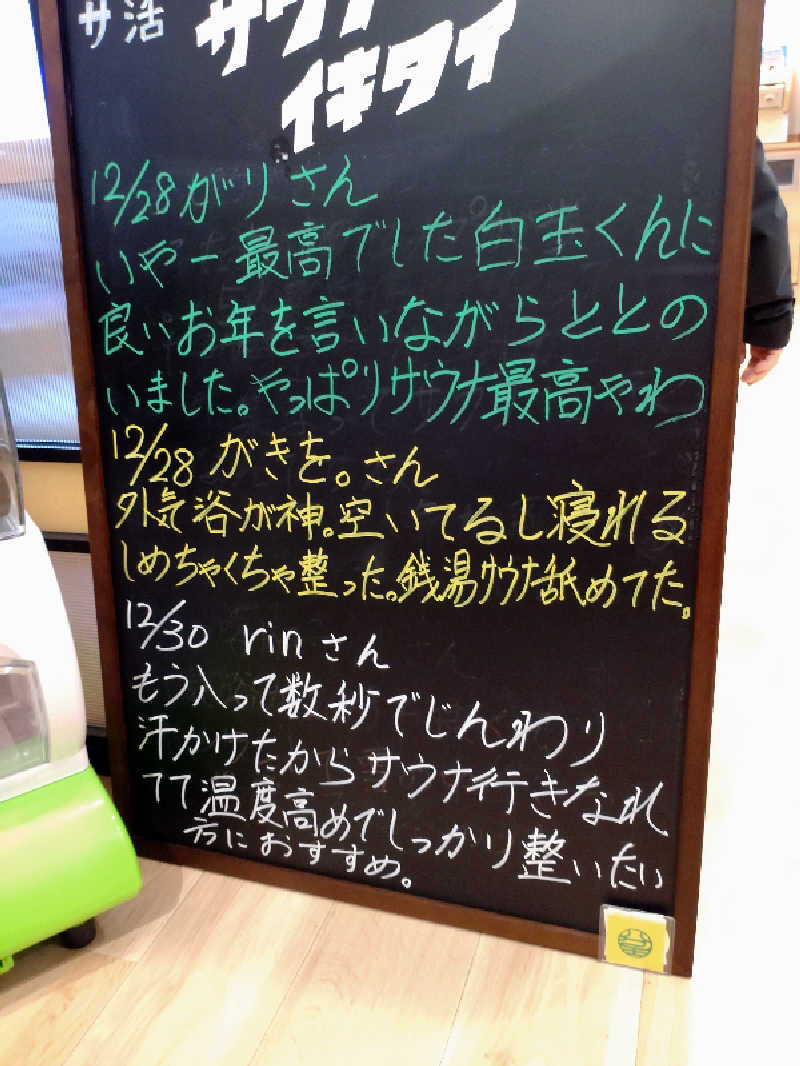 サ活
サウナ
イキタイ
12/28 がりさん
いやー最高でした白玉くんに
良いお年を言いながらととの
いました。やっぱりサウナ最高やわ
12/28 がきを。さん
外気浴が神。空いてるし寝れる
しめちゃくちゃ整った。銭湯サウナ舐めてた。
12/30 rinさん
もう入って数秒でじんわり
汗かけたからサウナ行きなれ
てて温度高めでしっかり整いたい
方におすすめ。